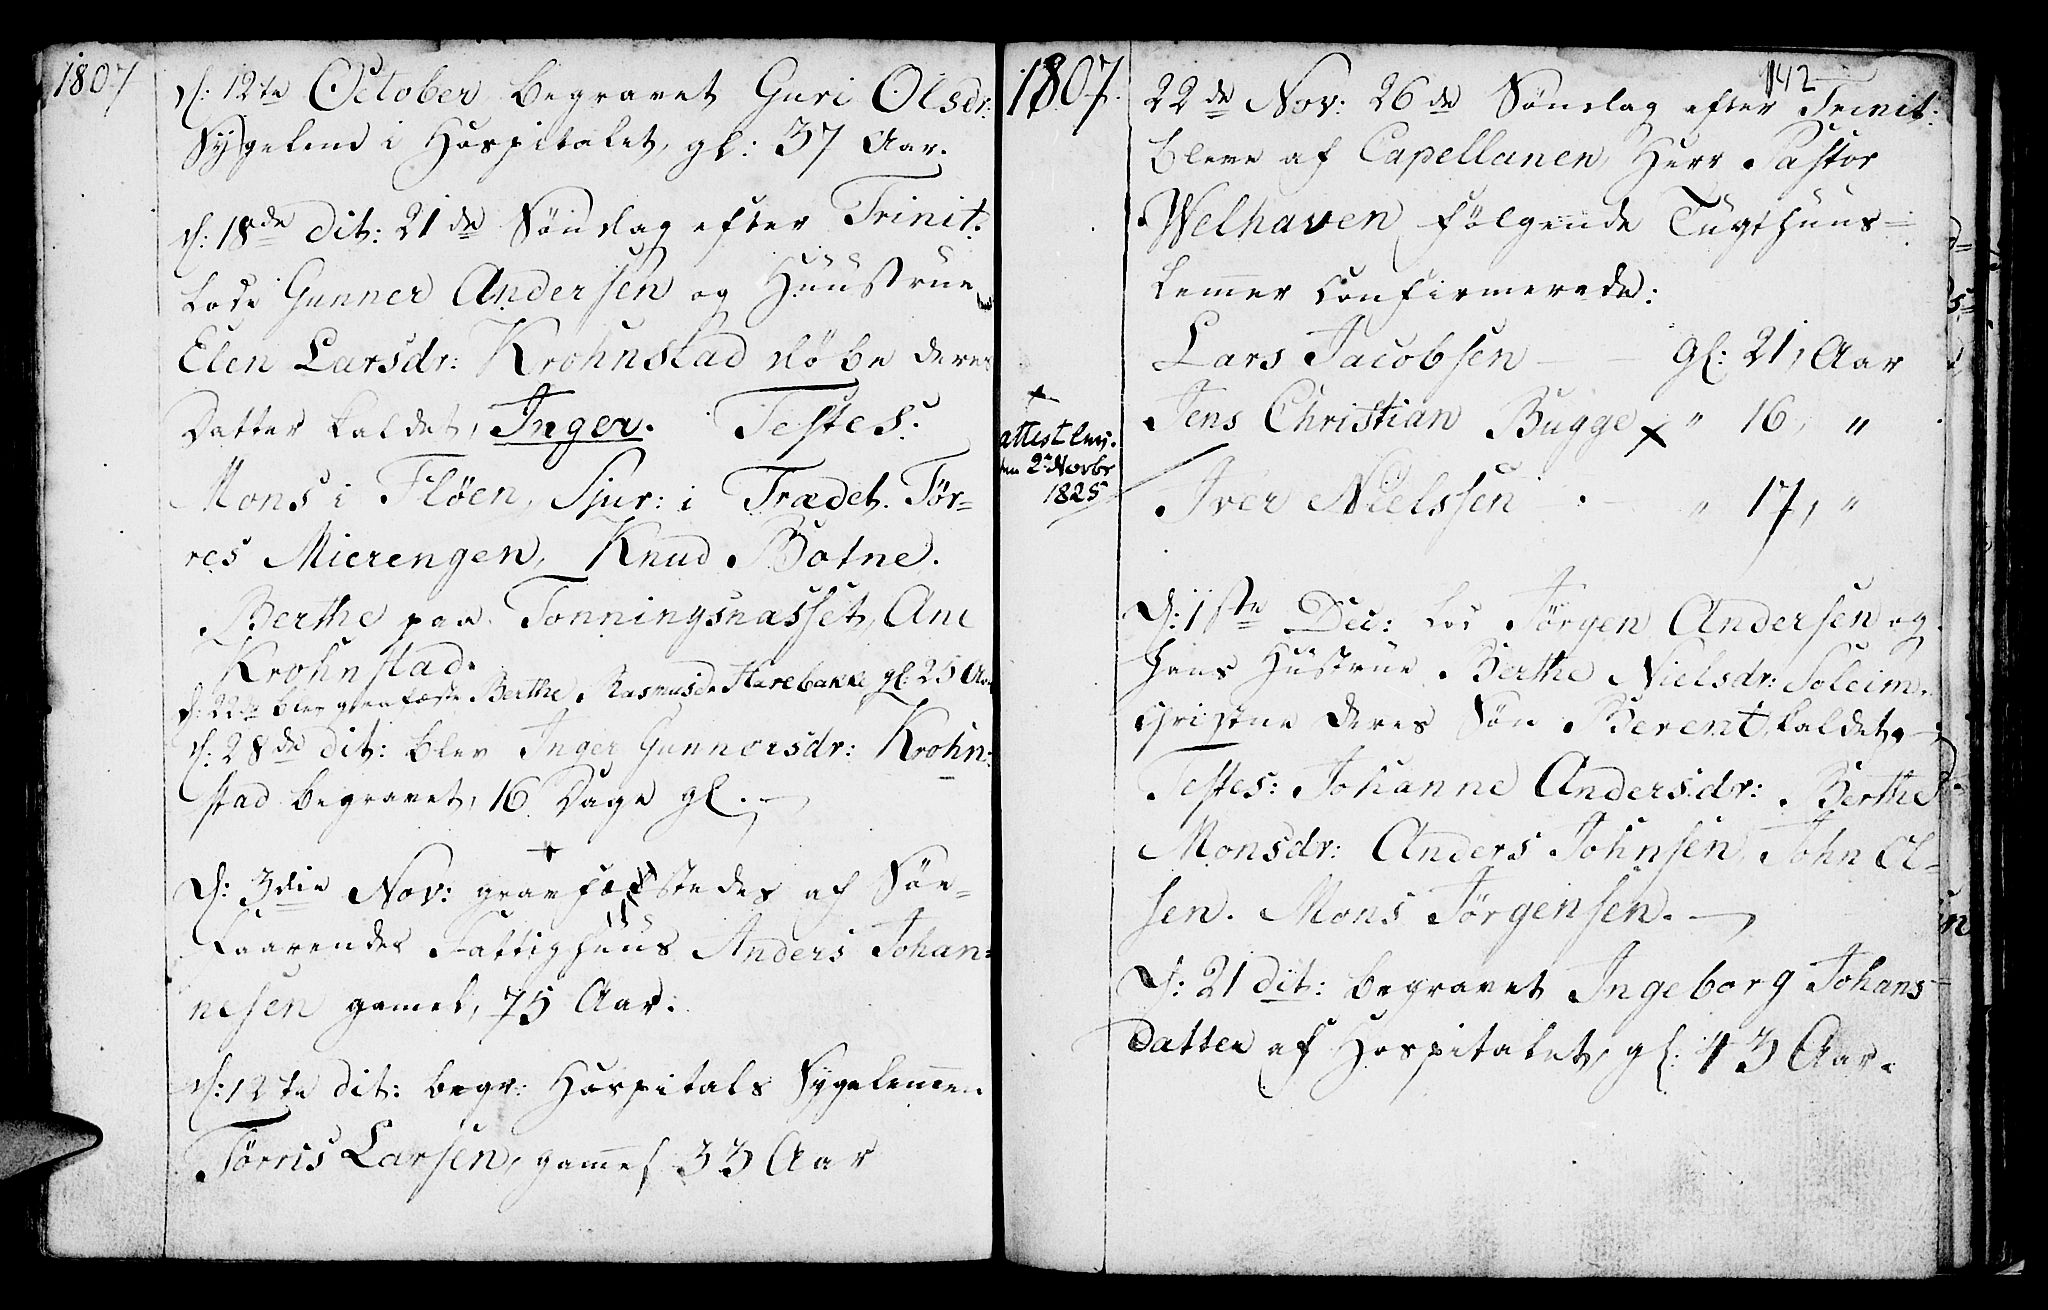 1807
d: 12te October begravet Guri Olsdr:
Sygelem i Hospitalet, gl: 37 Aar.
d: 18de dit: 21de Søndag efter Trinit:
lode Gunner Andersen og Huustrue
Elen Larsdr: Krohnstad døbe deres
Datter kaldet, Inger. Testes:
Mons i Fløen, Sjur: i Trædet. Tør=
res Mierengen, Knud Botne.
Berthe paa Tonningsnasset, Ane
Krohnstad.
d: 22de blev gravfæste Berthe Rasmusdr Harebakke gl: 25 Aar
d: 28de dit: blev Inger Gunnersdr: Krohn=
stad begravet, 16 Dage gl.
D: 3die Nov: gravfæstedes af Søe=
faarendes Fattighuus Anders Johan=
nesen gamel, 75 Aar.
d: 12te dit: begr: Hospitals Sygelemmen
Tørris Larsen, gammel 33 Aar
1807.
142
22de Nov: 26de Søndag efter Trinit:
bleve af Capellanen, Herr Pastor
Welhaven følgende Tugthuus=
lemmer confirmerede:
Lars Jacobsen — gl: 21, Aar
Jens Christian Bugge x " 16, "
+
attest lev.
den 2 Novbr
1825
Iver Nielssen — " 17, "
D: 1ste Dec: lod Jørgen Andersen og
hans Hustrue Berthe Nielsdr: Soleim.
christne deres Søn Berent kaldet,
Testes: Johanne Andersdr: Berthe
Monsdr: Anders Johnsen, John Ol=
sen. Mons Jørgensen.
D: 21 dit: begravet Ingeborg Johans=
datter af Hospitalet, gl: 43 Aar.